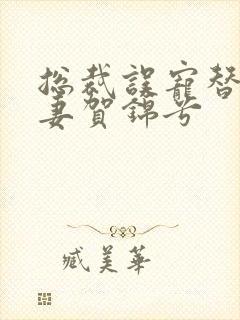 總裁誤寵替
妻賀錦兮
臧美華